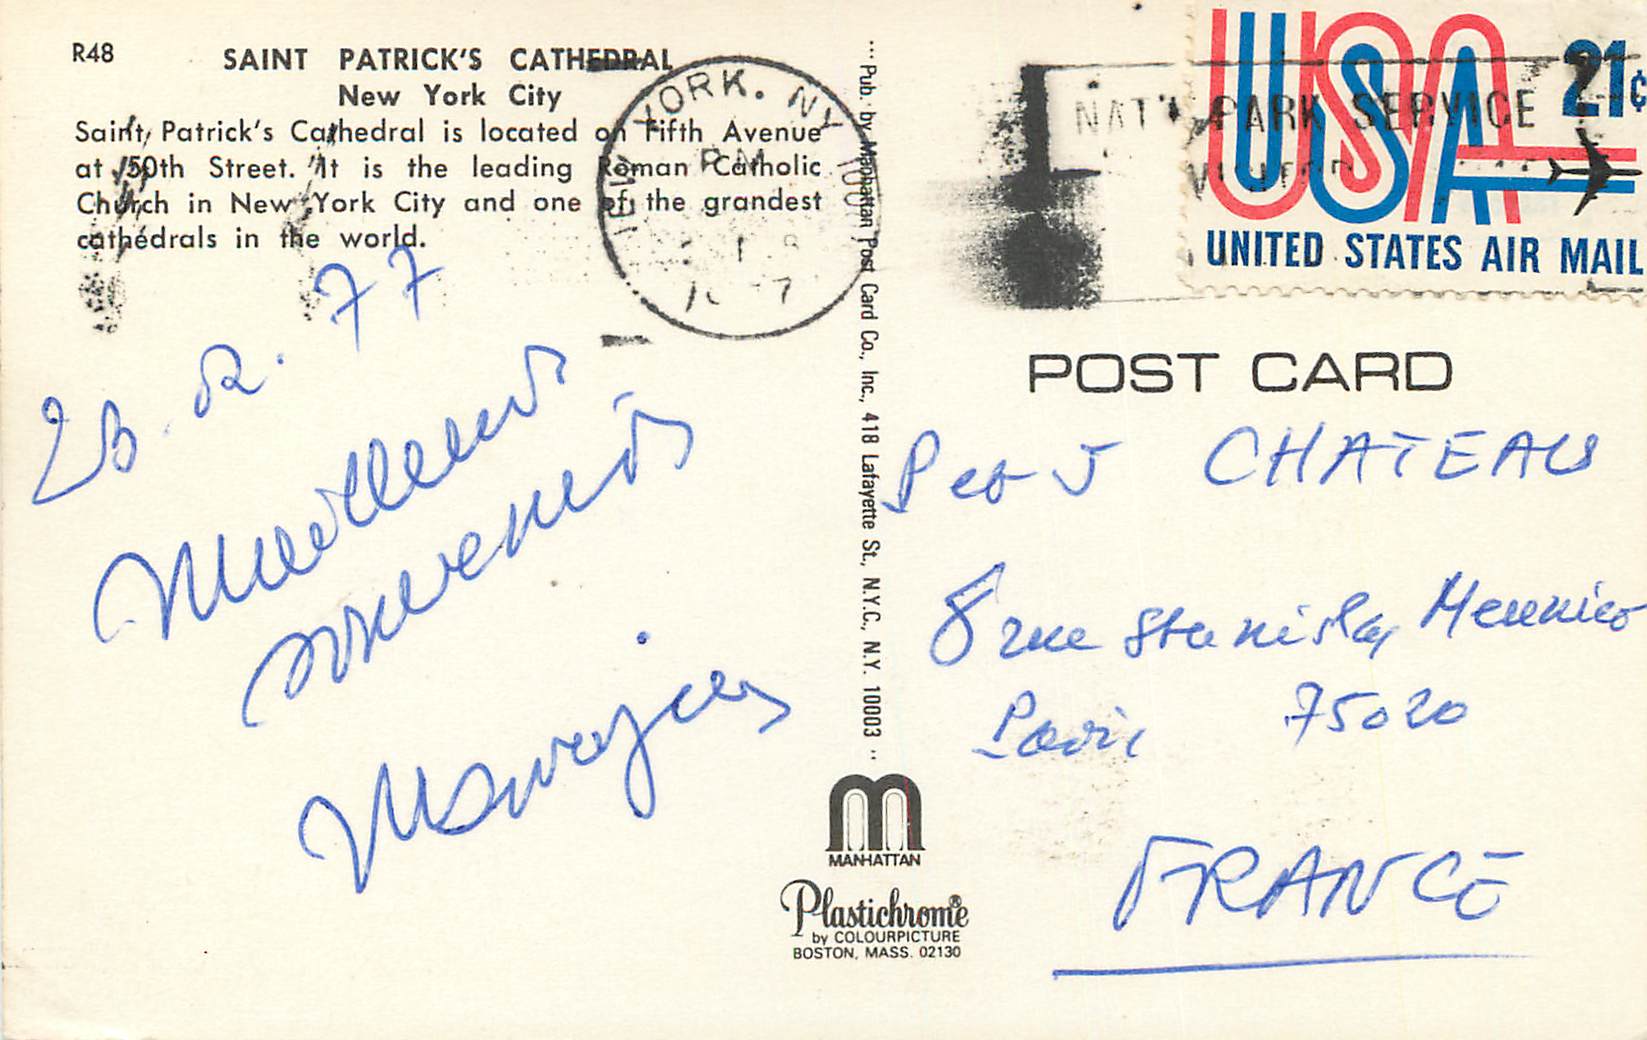 R48 SAINT PATRICK'S CATHEDRAL
New York City
Saint Patrick's Cathedral is located on Fifth Avenue
at 50th Street. It is the leading Roman Catholic
Church in New York City and one of the grandest
cathedrals in the world.
77
Meilleurs
souvenirs
YORK. NY
PM
Pub. by Manhattan Post Card Co., Inc., 418 Lafayette St., N.Y.C., N.Y. 10003
MANHATTAN
Plastichrome®
by COLOURPICTURE
BOSTON, MASS. 02130
NAT'L PARK SERVICE
USA 21¢
UNITED STATES AIR MAIL
POST CARD
P et J CHATEAU
8 rue Stanislas Meunier
Paris 75020
FRANCE